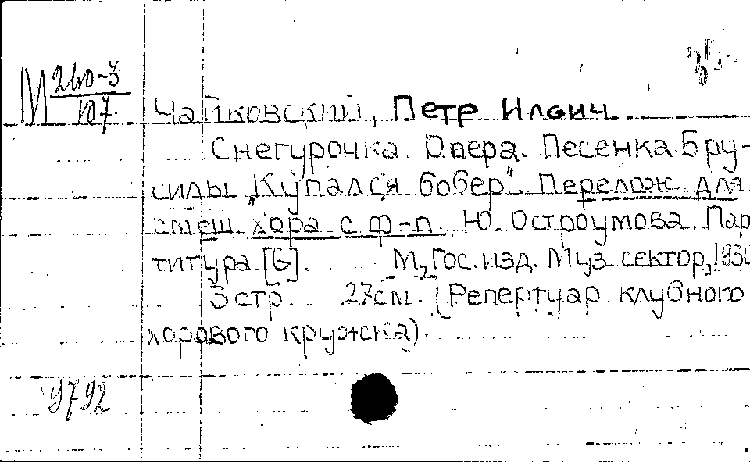 М 260-3
107
Чайковский, Петр Ильич
Снегурочка. Опера. Песенка Бру-
силы „Купался бобер". Перелож. для
смеш. хора с ф-п. Ю. Остроумова. Пар
титура. [G]. М., Гос. изд. Муз. сектор, 1930
3 стр. 27 см. (Репертуар клубного
хорового кружка).
9792